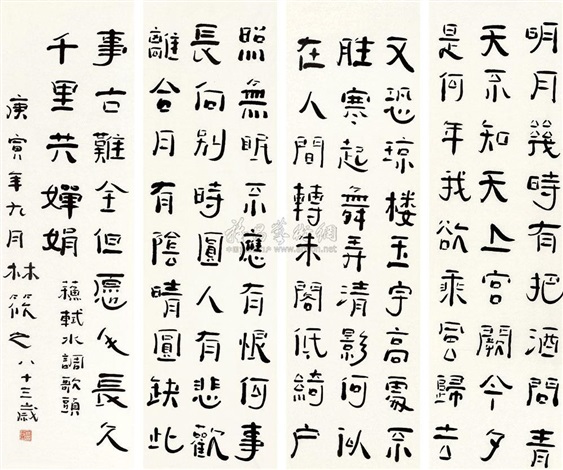 明月幾時有把酒問青
天不知天上宮闕今夕
是何年我欲乘風歸去
又恐琼楼玉宇高處不
胜寒起舞弄清影何似
在人間轉朱閣低綺户
照無眠不應有恨何事
長向別時圓人有悲歡
離合月有陰晴圓缺此
事古難全但愿人長久
千里共嬋娟
蘇軾水調歌頭
庚寅年九月林筱之八十三歲